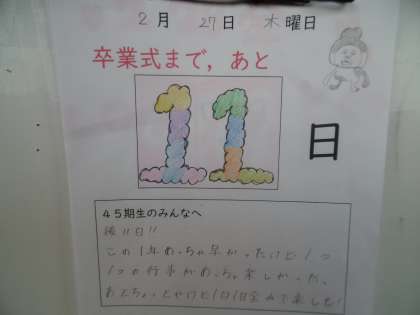 2月 27日 木曜日
卒業式まで，あと
11日
45期生のみんなへ
後11日!!
この1年めっちゃ早かったけど1つ
1つの行事がめっちゃ楽しかった。
あとちょっとやけど1日1日全力で楽しも!